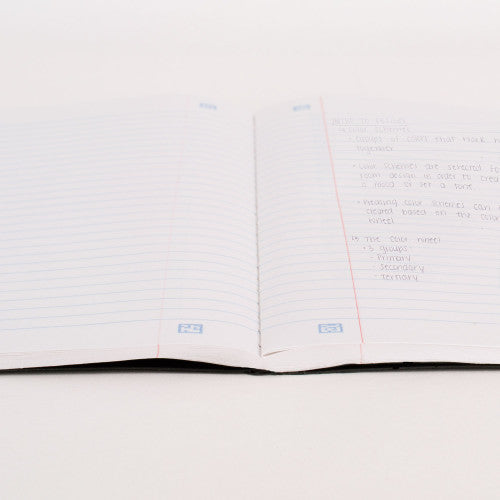 INTRO TO DESIGN
Color Schemes
• Groups of colors that work
together
• Color Schemes are selected
room design in order to
a mood or set a tone.
• color schemes can
created based on the color
wheel
The Color Wheel
• 3 groups:
- Primary
- Secondary
- Tertiary